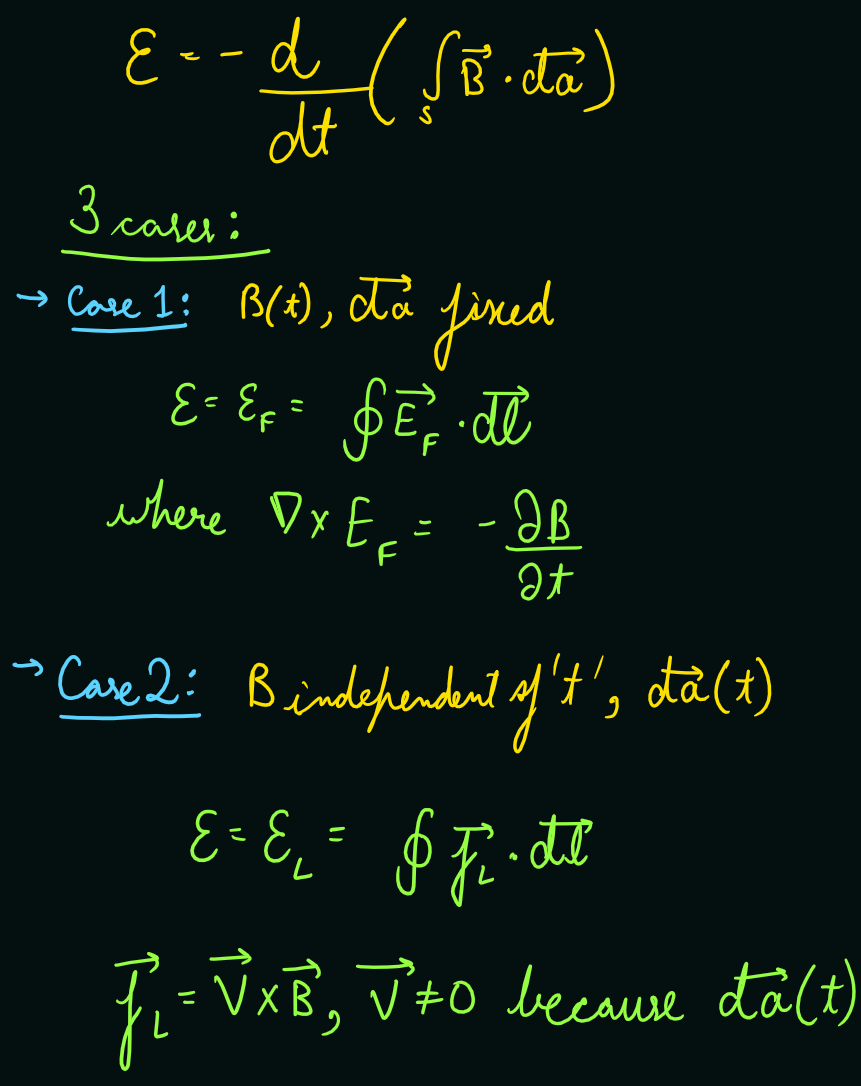 ℰ = - d/dt ( ∫_S B⃗ · d⃗a )
3 cases:
→ Case 1: B(t), d⃗a fixed
ℰ = ℰ_F = ∮ E⃗_F · d⃗l
where ∇ × E_F = - ∂B/∂t
→ Case 2: B independent of 't', d⃗a(t)
ℰ = ℰ_L = ∮ f⃗_L · d⃗l
f⃗_L = V⃗ × B⃗, V⃗ ≠ 0 because d⃗a(t)